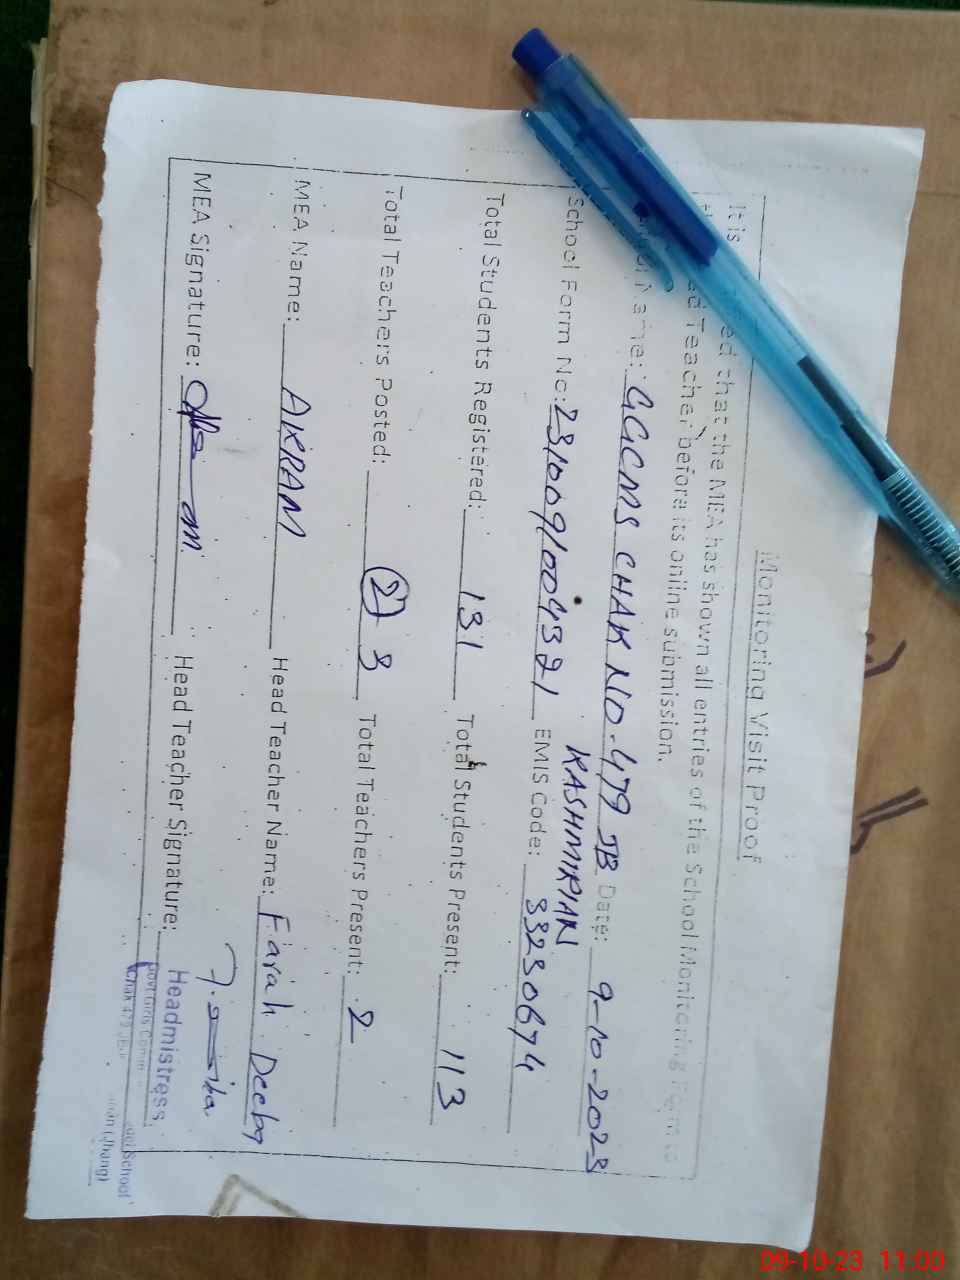 Monitoring Visit Proof
It is that the MEA has shown all entries of the School Monitoring Form to
Teacher before its online submission.
Name: GGCMS CHAK NO. 479 JB Date: 9-10-2023
KASHMIRIAN
School Form No: EMIS Code: 33230674
Total Students Registered: 131 Total Students Present: 113
Total Teachers Posted: (2) 3 Total Teachers Present: 2
MEA Name: AKRAM Head Teacher Name: Farah Deeba
MEA Signature: Head Teacher Signature:
Headmistress
Govt Girls Comm School
Chak 479 JB (Jhang)
09-10-23 11:00